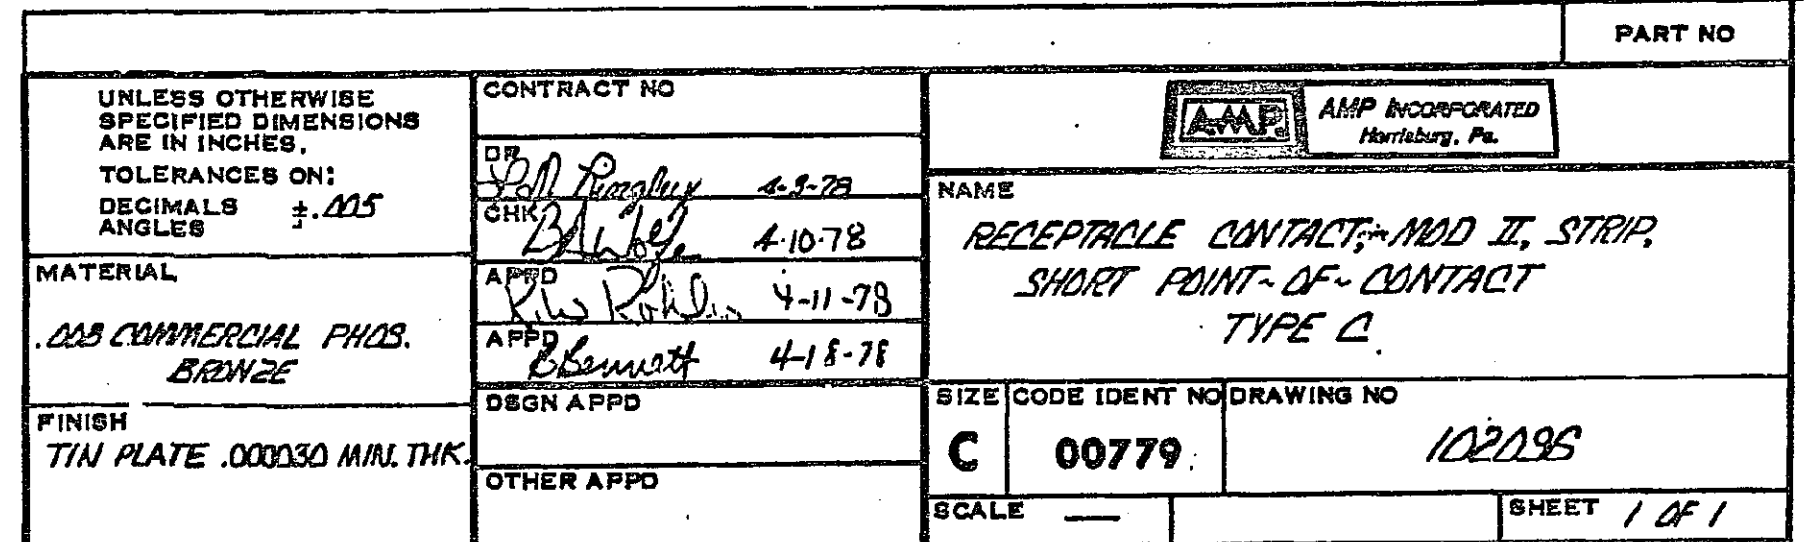 PART NO
UNLESS OTHERWISE
SPECIFIED DIMENSIONS
ARE IN INCHES.
TOLERANCES ON:
DECIMALS ±.005
ANGLES
MATERIAL
.008 COMMERCIAL PHOS.
BRONZE
FINISH
TIN PLATE .000030 MIN. THK.
CONTRACT NO
DR 4-3-78
CHK 4-10-78
APPD 4-11-78
APPD B Bennett 4-18-78
DSGN APPD
OTHER APPD
AMP
AMP INCORPORATED
Harrisburg, Pa.
NAME
RECEPTACLE CONTACT, MOD II, STRIP,
SHORT POINT-OF-CONTACT
TYPE C
SIZE CODE IDENT NO DRAWING NO
C 00779 102096
SCALE —
SHEET 1 OF 1